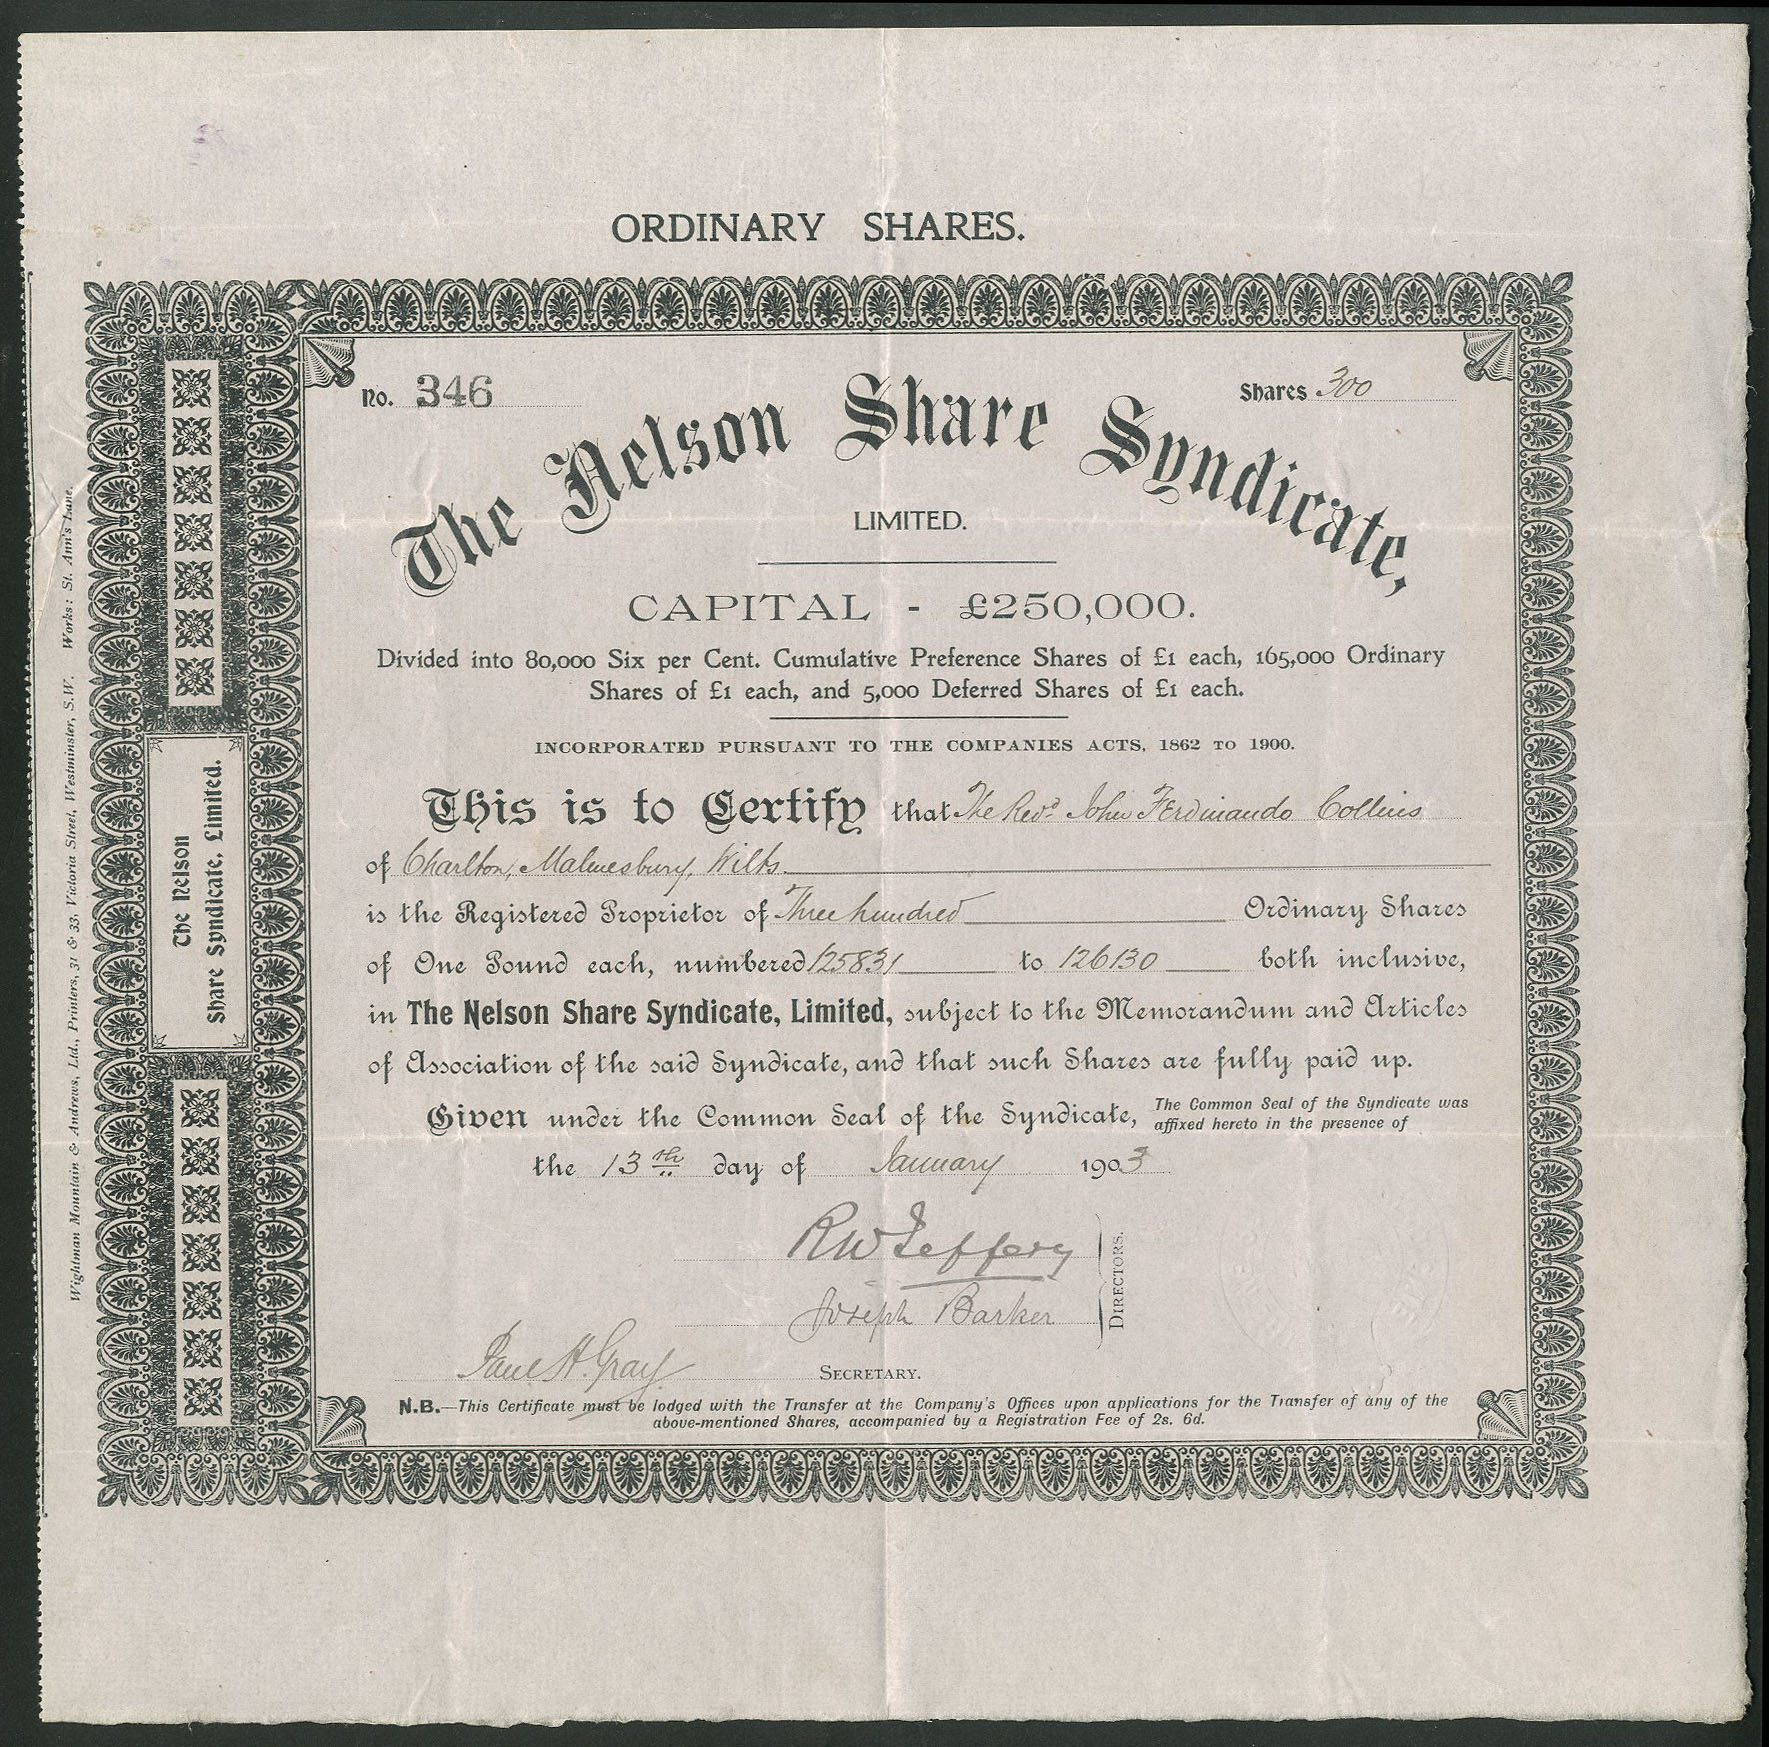 ORDINARY SHARES.
No. 346
Shares 300
The Nelson Share Syndicate,
LIMITED.
CAPITAL - £250,000.
Divided into 80,000 Six per Cent. Cumulative Preference Shares of £1 each, 165,000 Ordinary
Shares of £1 each, and 5,000 Deferred Shares of £1 each.
INCORPORATED PURSUANT TO THE COMPANIES ACTS, 1862 TO 1900.
This is to Certify that The Revd John Ferdinando Collins
of Charlton, Malmesbury, Wilts.
is the Registered Proprietor of Three hundred Ordinary Shares
of One Pound each, numbered 125831 to 126130 both inclusive,
in The Nelson Share Syndicate, Limited, subject to the Memorandum and Articles
of Association of the said Syndicate, and that such Shares are fully paid up.
Given under the Common Seal of the Syndicate, The Common Seal of the Syndicate was
affixed hereto in the presence of
the 13th day of January 1903
RW Jeffery
Joseph Barker
DIRECTORS.
Paul H. Gray
SECRETARY.
N.B.—This Certificate must be lodged with the Transfer at the Company's Offices upon applications for the Transfer of any of the
above-mentioned Shares, accompanied by a Registration Fee of 2s. 6d.
The Nelson
Share Syndicate, Limited.
Wightman Mountain & Andrews, Ltd., Printers, 31 & 33, Victoria Street, Westminster, S.W. Works: St. Ann's Lane.